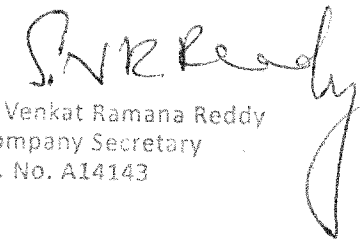 S.V R Reddy
Venkat Ramana Reddy
ompany Secretary
. No. A14143